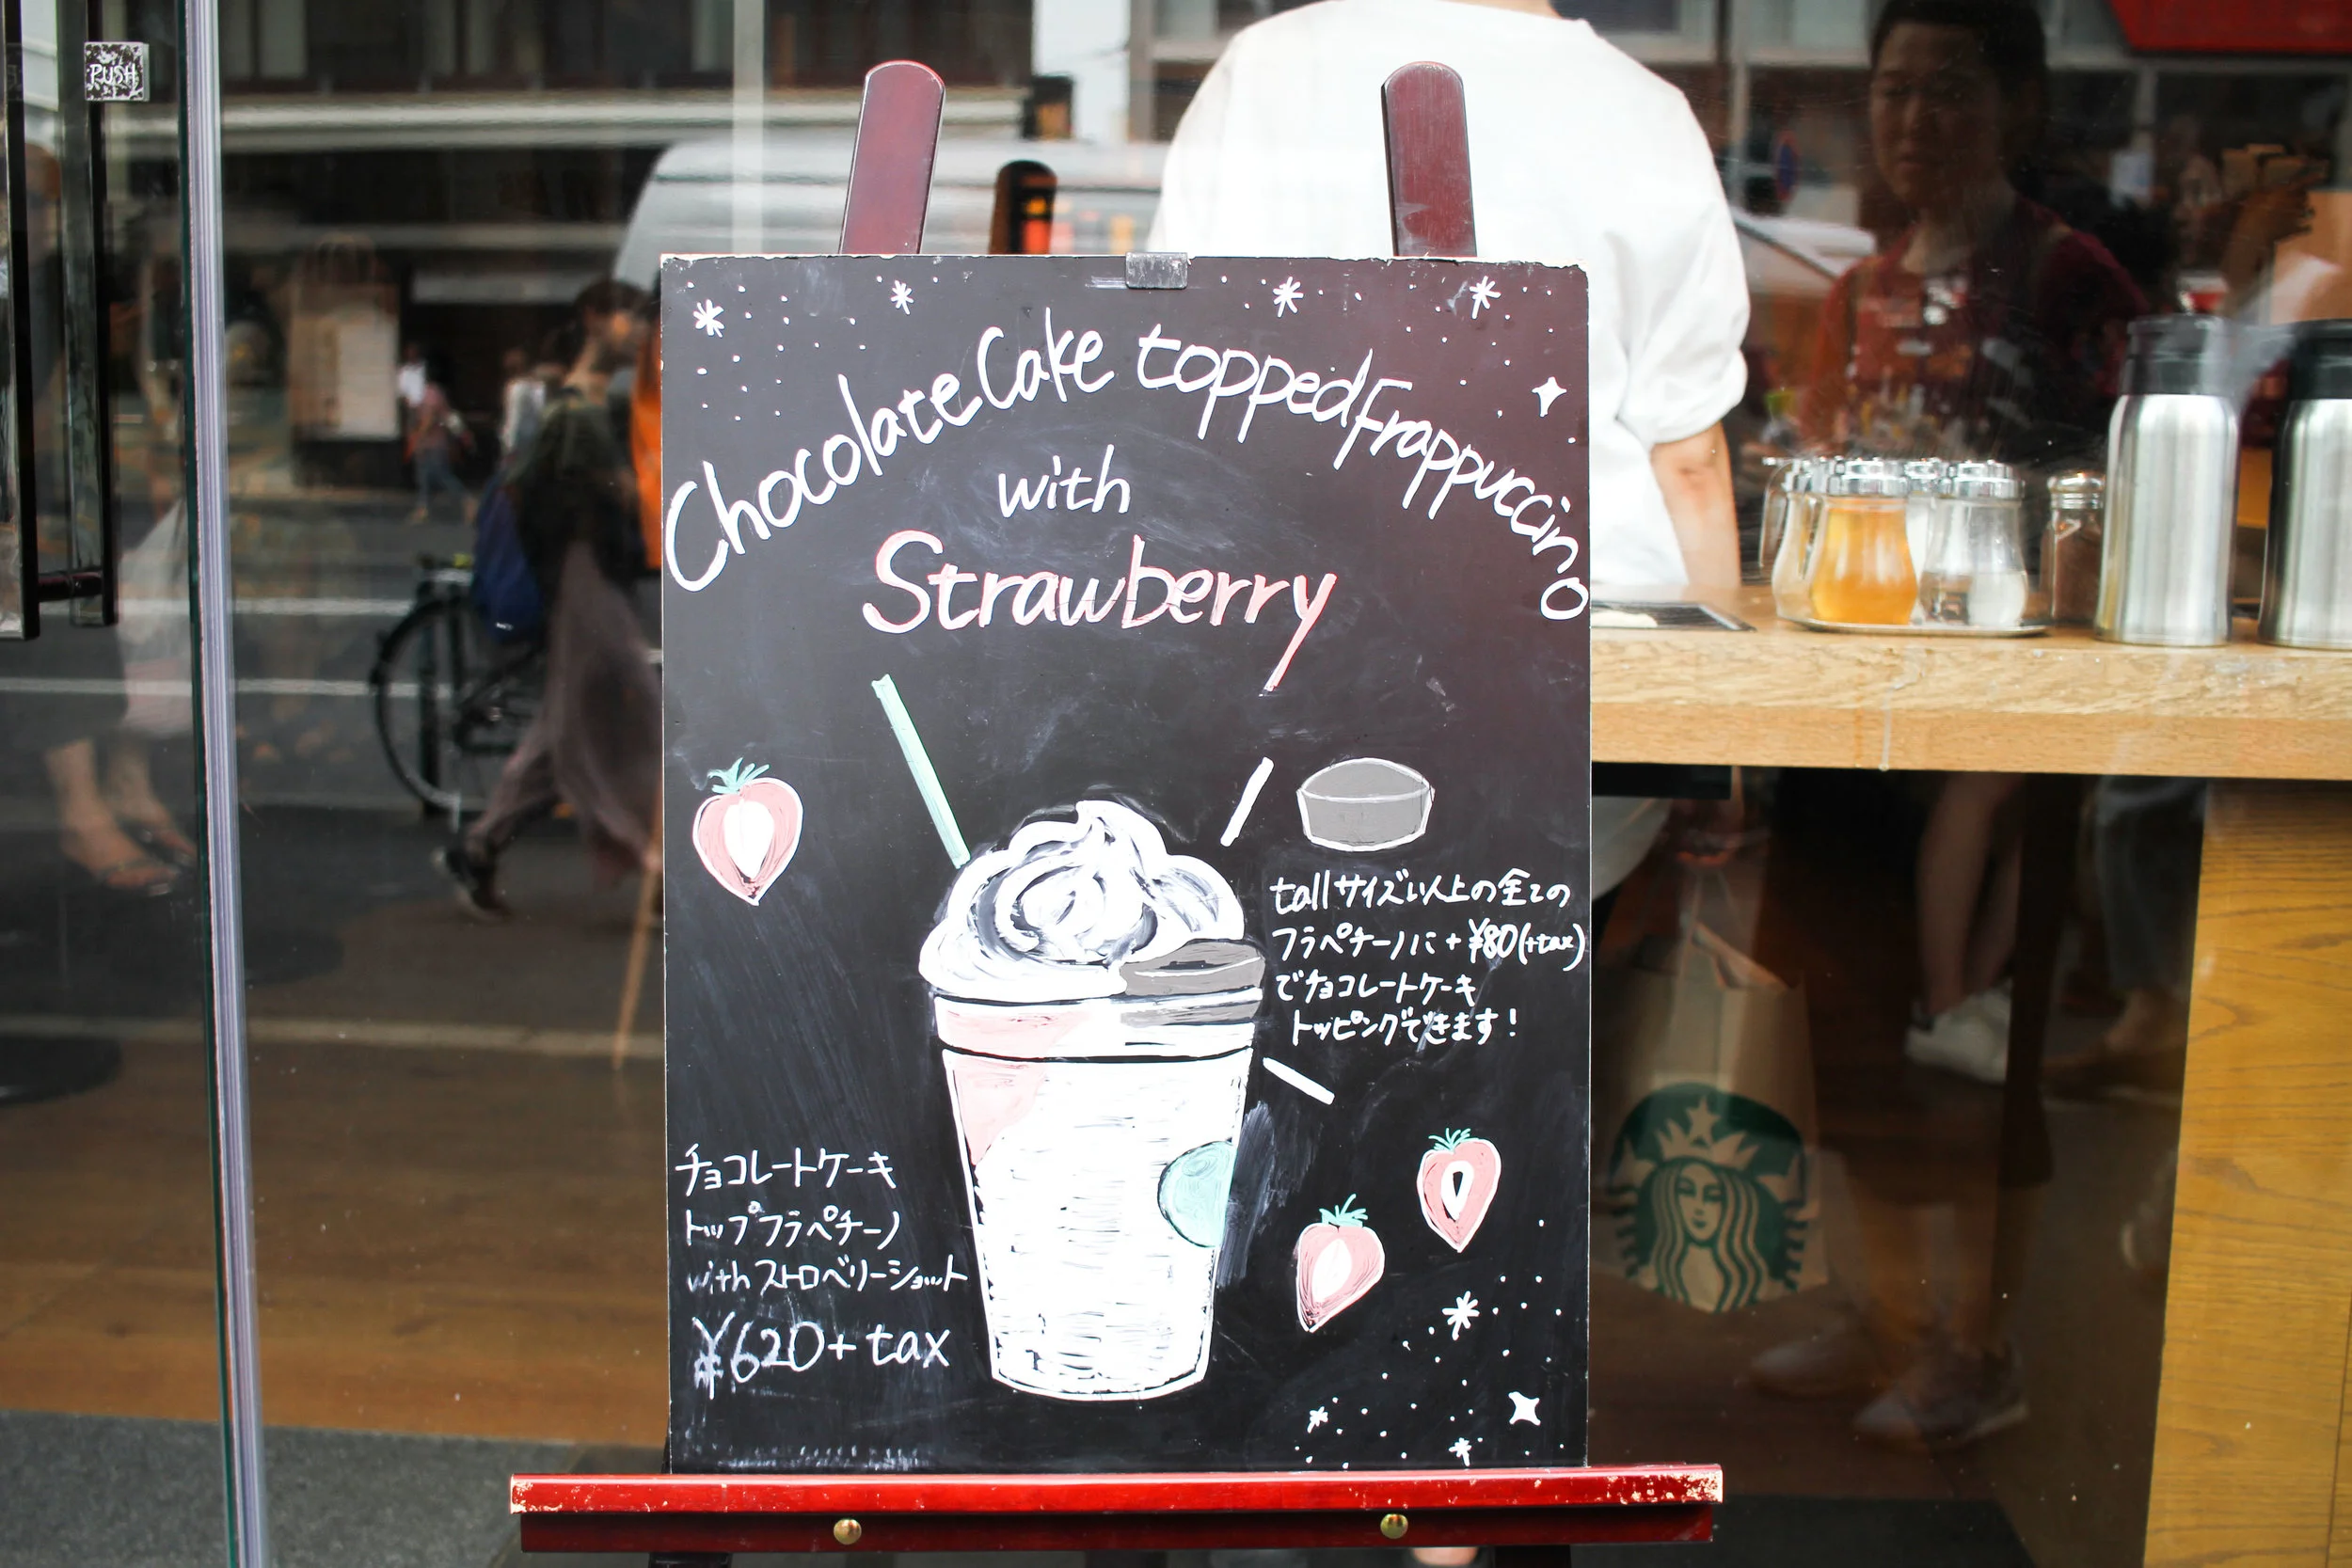 PUSH
Chocolate Cake topped Frappuccino
with
Strawberry
tallサイズ以上の全ての
フラペチーノに+¥80(+tax)
でチョコレートケーキ
トッピングできます!
チョコレートケーキ
トップフラペチーノ
withストロベリーショット
¥620+tax